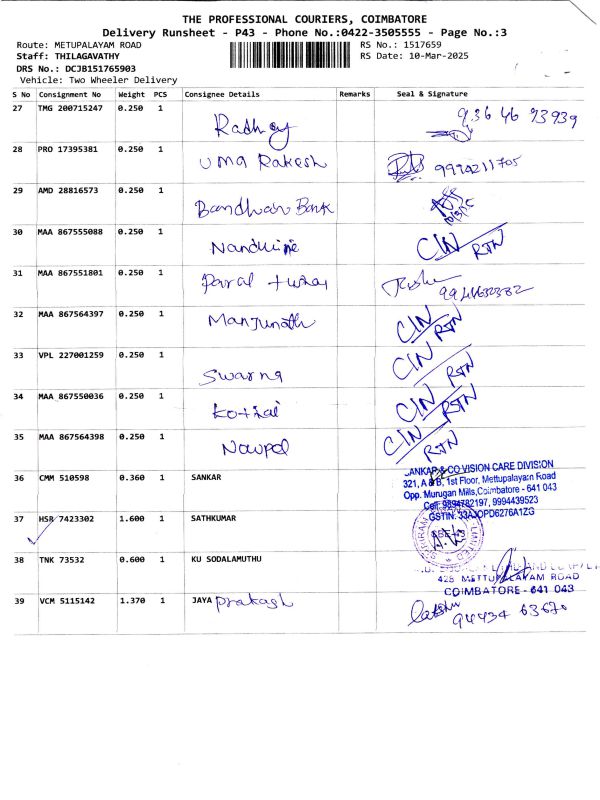 THE PROFESSIONAL COURIERS, COIMBATORE
Delivery Runsheet - P43 - Phone No.:0422-3505555 - Page No.:3
Route: METUPALAYAM ROAD RS No.: 1517659
Staff: THILAGAVATHY RS Date: 10-Mar-2025
DRS No.: DCJB151765903
Vehicle: Two Wheeler Delivery
S No Consignment No Weight PCS Consignee Details Remarks Seal & Signature
27 TMG 200715247 0.250 1 936 46 93939
28 PRO 17395381 0.250 1 Uma Rakesh 9990211705
29 AMD 28816573 0.250 1 Bandhan Bank 10/3/25
30 MAA 867555088 0.250 1 Nandhine C/N RTN
31 MAA 867551801 0.250 1
32 MAA 867564397 0.250 1 Manjunath C/N RTN
33 VPL 227001259 0.250 1 Swarna C/N RTN
34 MAA 867550036 0.250 1 C/N RTN
35 MAA 867564398 0.250 1 C/N RTN
36 CMM 510598 0.360 1 SANKAR
SANKAR & CO VISION CARE DIVISION
321, A & B, 1st Floor, Mettupalayam Road
Opp. Murugan Mills, Coimbatore - 641 043
Cell: 9894782197, 9994439523
GSTIN: 33AJOPD6276A1ZG
37 HSR 7423302 1.600 1 SATHKUMAR
38 TNK 73532 0.600 1 KU SODALAMUTHU
428 METTUPALAYAM ROAD
COIMBATORE - 641 043
39 VCM 5115142 1.370 1 JAYA prakash 94434 63670